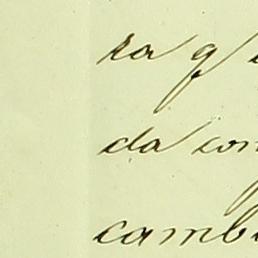 ra q
da con
camb